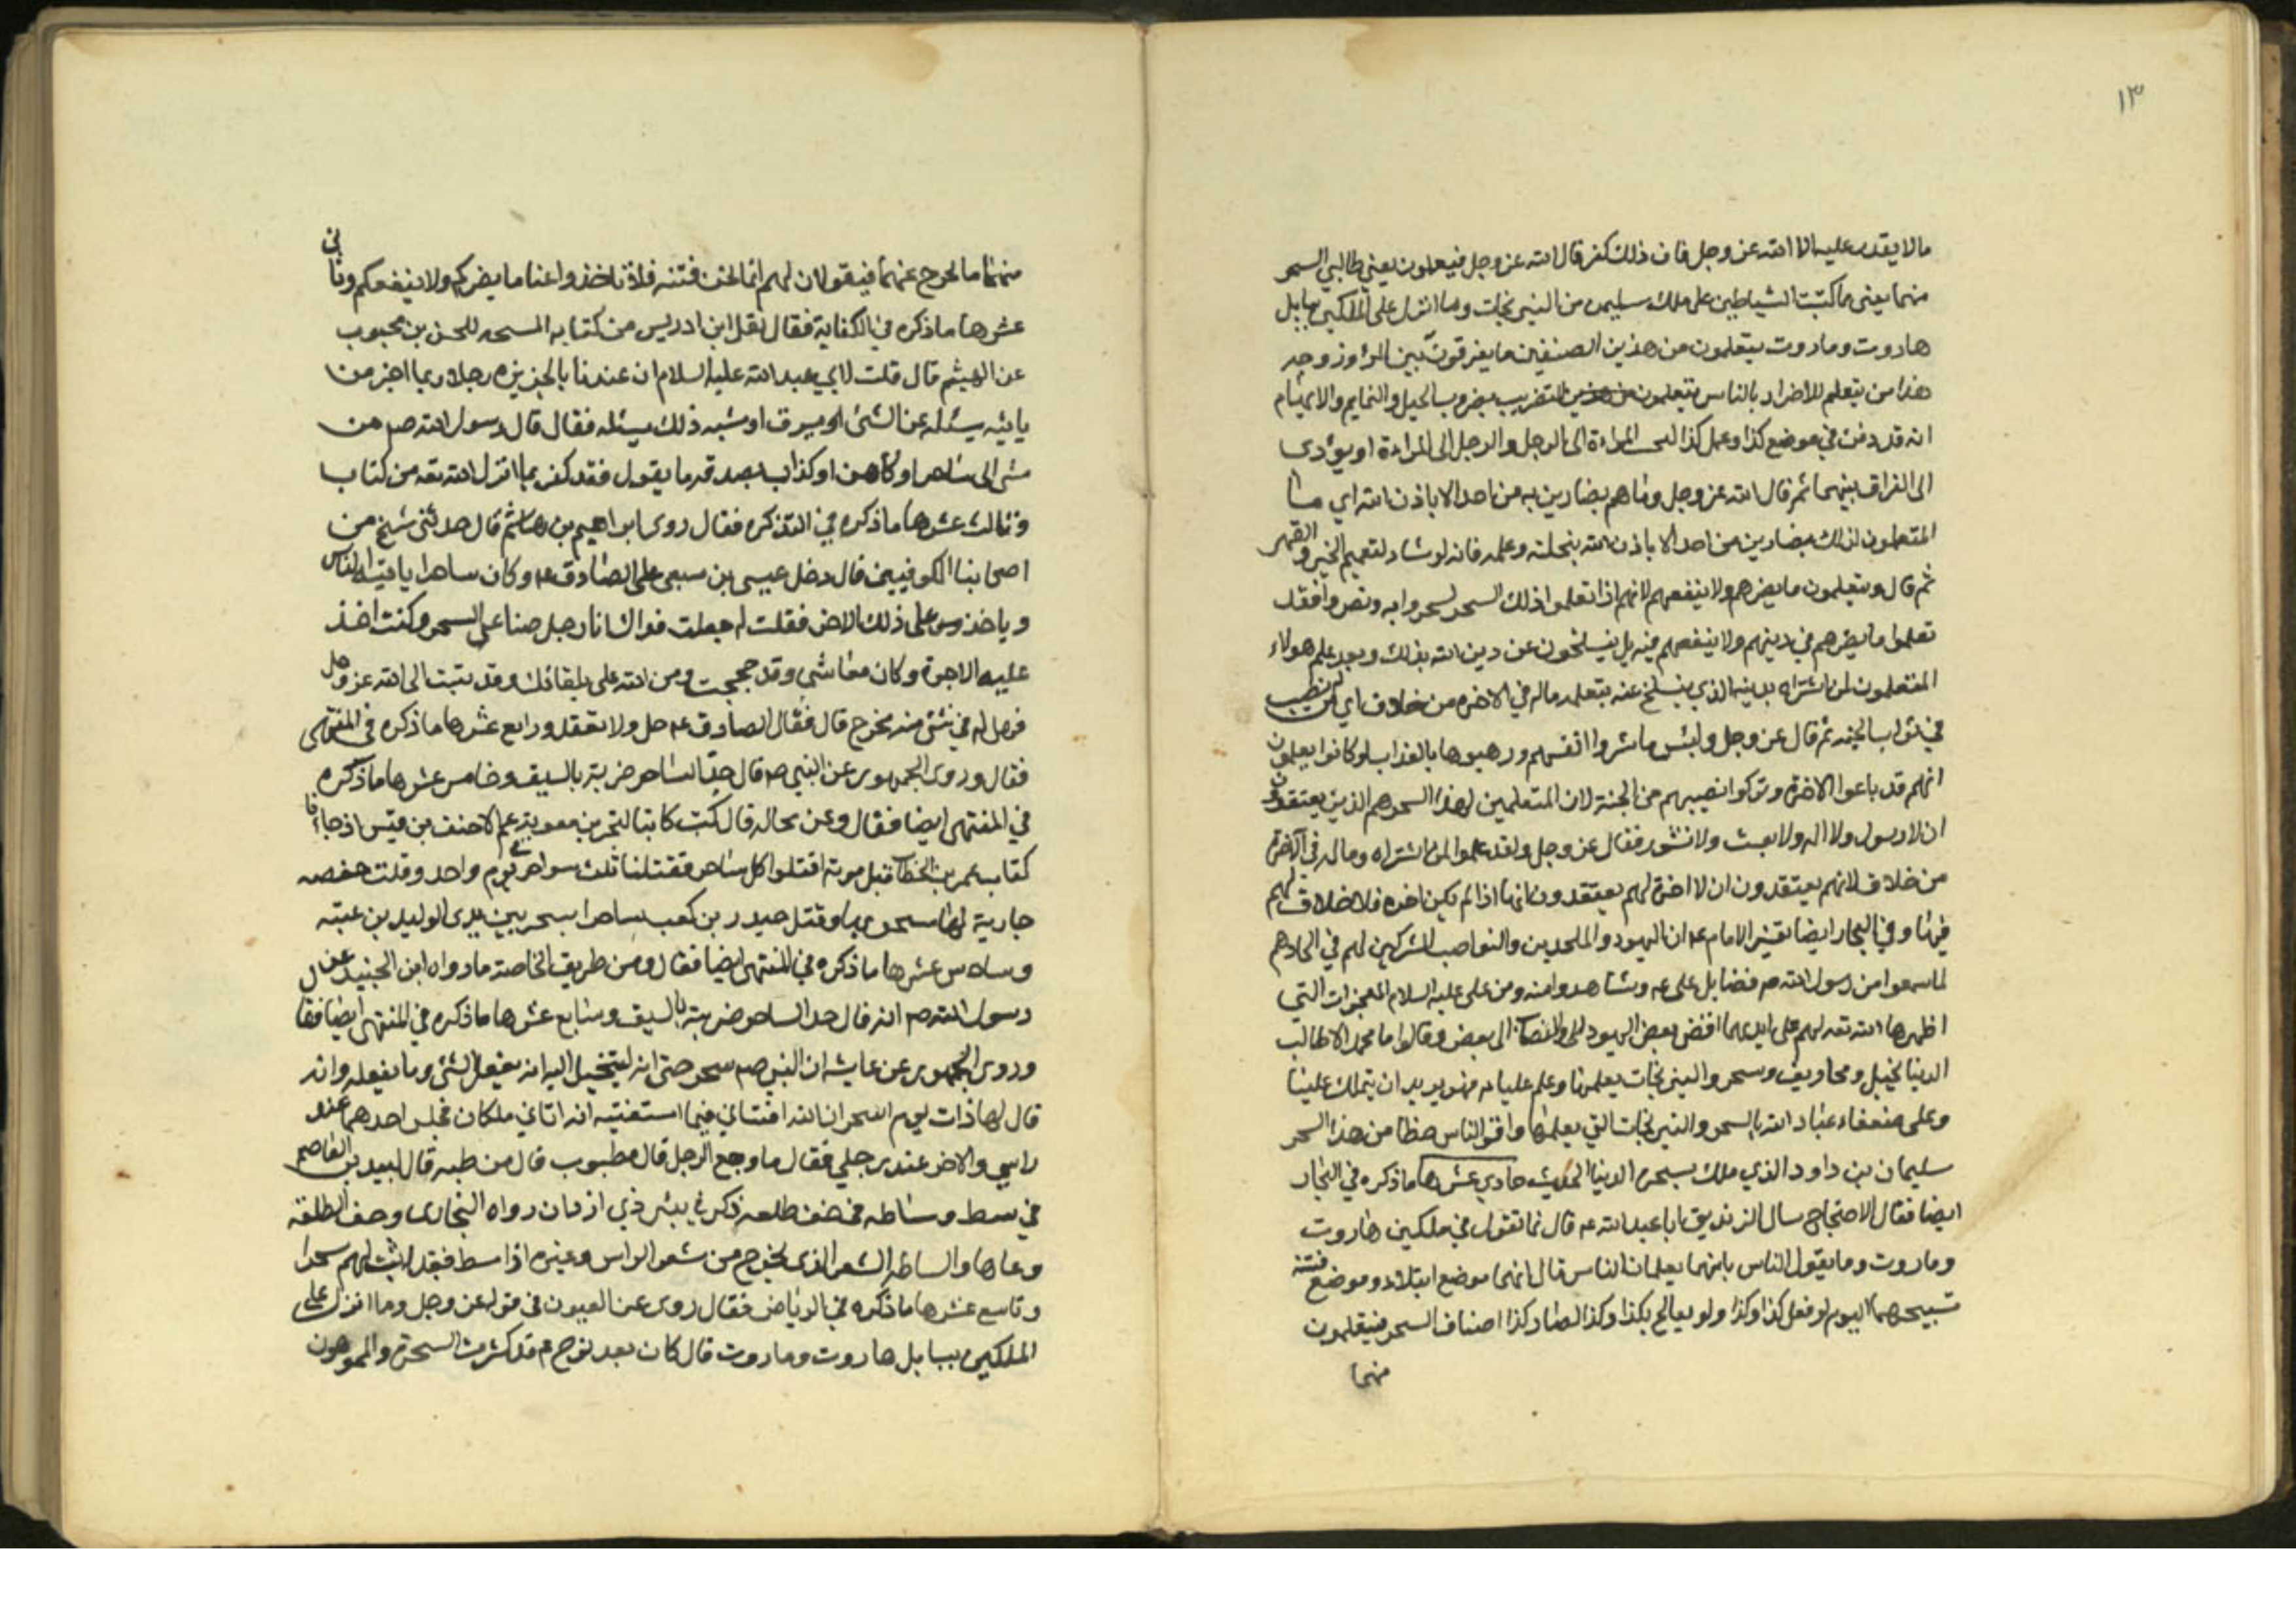 ١٣
ما لا يقدر عليه الا الله عز وجل فان ذلك كفر قال الله عز وجل فيتعلمون يعني طالبي السحر
منهما يعني ما كتبت الشياطين على ملك سليمن من النيرنجات وما انزل على الملكين ببابل
هاروت وماروت يتعلمون من هذين الصنفين ما يفرقون بين المرء وزوجه
هذا من يتعلم للاضرار بالناس يتعلمون التضريب بضروب الحيل والنمايم والايهام
انه قد دفن في موضع كذا وعمل كذا المراءة الى الرجل والرجل الى المراءة او يؤدى
الى الفراق بينهما ثم قال الله عز وجل وما هم بضارين به من احد الا باذن الله اي ما
المتعلمون لذلك بضارين من احد الا باذن الله بتخلية وعلمه فانه لو شاء لمنعهم بالجبر والقهر
ثم قال ويتعلمون ما يضرهم ولا ينفعهم لانهم اذا تعلموا ذلك السحر ليسحروا به ويضروا فقد
تعلموا ما يضرهم في دينهم ولا ينفعهم فيه بل ينسلخون عن دين الله بذلك ولقد علم هولاء
المتعلمون لمن اشتراه بدينه الذي ينسلخ عنه بتعلمه ماله في الاخرة من خلاق اي من نصيب
في ثواب الجنة ثم قال عز وجل ولبئس ما شروا انفسهم ورهنوها بالعذاب لو كانوا يعلمون
انهم قد باعوا الاخرة وتركوا نصيبهم من الجنة لان المتعلمين لهذا السحر هم الذين يعتقدون
ان لا رسول ولا اله ولا بعث ولا نشور فقال عز وجل ولقد علموا لمن اشتراه وماله في الآخرة
من خلاق لانهم يعتقدون ان لا اخرة لهم يعتقدون انها اذا لم يكن اخرة فلا خلاق لهم
فيها وفي البحار ايضا تفسير الامام عه ان اليهود والملحدين والنواصب المشركين لهم في الحادهم
لما سمعوا من رسول الله ص فضايل على عه وشاهدوا منه ومن على عليه السلام المعجزات التي
اظهرها الله تعه لهم على ايديهما افضى بعض اليهود والنصاب الى بعض وقالوا ما محمد الا طالب
الدنيا بحيل ومخاريق وسحر والنيرنجات يعلمها وعلم عليا عه فهو يريد ان يتملك علينا
وعلى ضعفاء عباد الله بالسحر والنيرنجات التي يعلمها واقر الناس حظا من هذا السحر
سليمان بن داود الذي ملك بسحره الدنيا الحديث حادي عشرها ما ذكره في البحار
ايضا فقال الاحتجاج سال الزنديق ابا عبد الله عه قال فما تقول في ملكين هاروت
وماروت وما يقول الناس بانهما يعلمان الناس قال انهما موضع ابتلاء وموضع فتنة
تسبيحهما اليوم لو فعل كذا وكذا ولو يعالج بكذا وكذا لصار كذا اصناف السحر فيتعلمون
منهما
منهما ما يخرج عنهما فيقولان لهم انما نحن فتنه فلا تاخذوا عنا ما يضركم ولا ينفعكم وثاني
عشرها ما ذكره في الكفاية فقال نقل ابن ادريس من كتاب المسحه للحسن بن محبوب
عن الهيثم قال قلت لابي عبد الله عليه السلام ان عندنا بالجزيره رجلا ربما اخبر من
ياتيه يسئله عن الشئ يسرق او شبه ذلك يسئله فقال قال رسول الله ص من
مشى الى ساحر او كاهن او كذاب يصدقه ما يقول فقد كفر بما انزل الله تعه من كتاب
وثالث عشرها ما ذكره في التذكره فقال روى ابراهيم بن هاشم قال حدثني شيخ من
اصحابنا الكوفيين قال دخل عيسى بن سيعى على الصادق عه وكان ساحرا ياتيه الناس
وياخذ على ذلك الاجر فقلت له جعلت فداك انا رجل صناعتي السحر وكنت اخذ
عليه الاجرة وكان معاشي وقد حججت ومن الله على بلقائك وقد تبت الى الله عز وجل
فهل لي في شئ منه مخرج قال فقال الصادق عه حل ولا تعقد ورابع عشرها ما ذكره في المنتهى
فقال وروى الجمهور عن النبي ص قال حد الساحر ضربة بالسيف وخامس عشرها ما ذكره
في المنتهى ايضا فقال وعن بجاله قال كنت كاتبا لجزء بن معوية عم الاحنف بن قيس اذ جاءنا
كتاب عمر بن الخطاب قبل موته اقتلوا كل ساحر فقتلنا ثلث سواحر في يوم واحد وقتلت حفصه
جارية لها سحرتها وقتل جندر بن كعب ساحرا يسحر بين يدى الوليد بن عتبه
وسادس عشرها ما ذكره في المنتهى ايضا فقال ومن طريق الخاصة ما رواه ابن الجنيد عن
رسول الله ص انه قال حد الساحر ضربته بالسيف وسابع عشرها ما ذكره في المنتهى ايضا فقال
وروى الجمهور عن عايشه ان النبي ص سحر حتى انه ليتخيل اليه انه يفعل الشئ وما يفعله وانه
قال لها ذات يوم ان الله افتاني فيما استفتيته انه اتاني ملكان فجلس احدهما عند
راسي والاخر عند رجلي فقال ما وجع الرجل قال مطبوب قال من طبه قال لبيد بن العاصم
في مشط ومشاطه في جف طلعه ذكر في بئر ذي اروان رواه البخارى وجف الطلعه
وعاءها والمشاطه الشعر الذي يخرج من شعر الراس وغيره اذا مشط فقد اثبت لهم سحرا
وتاسع عشرها ما ذكره في الرياض فقال روى عن العيون في قوله عز وجل وما انزل على
الملكين ببابل هاروت وماروت قال كان بعد نوح عه قد كثرت السحرة والمموهون